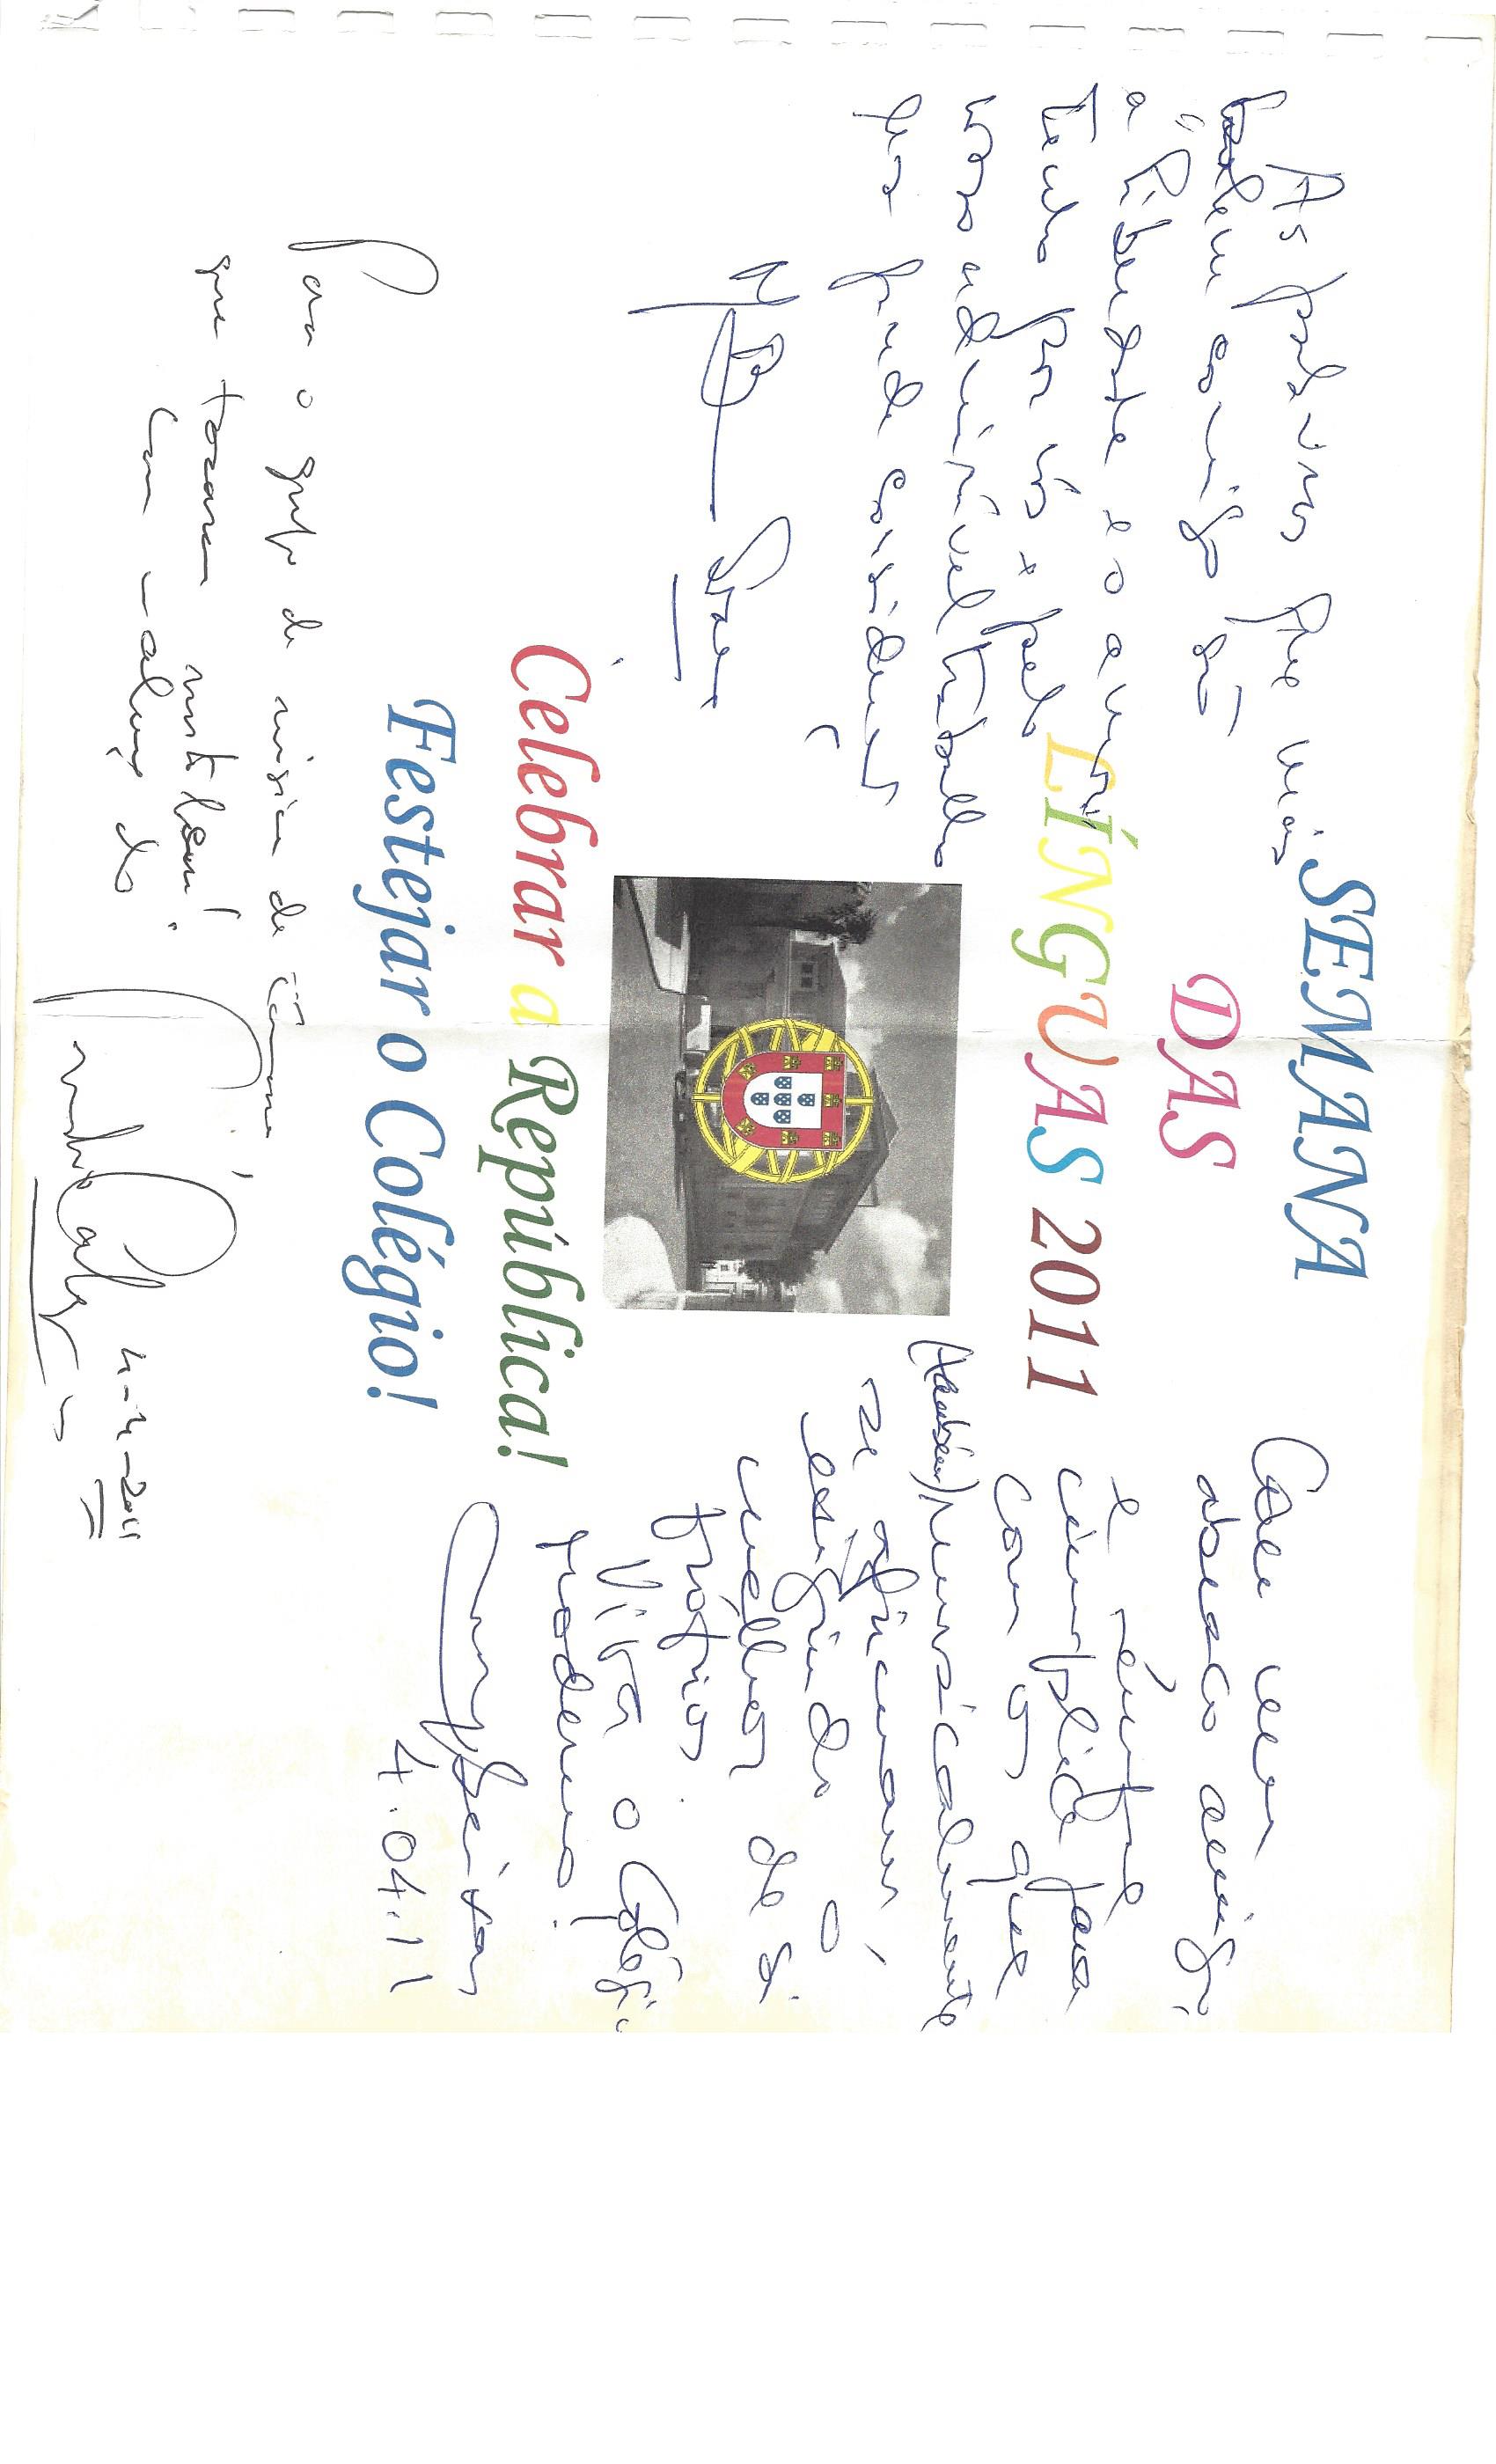 SEMANA
DAS
LÍNGUAS 2011
Celebrar a República!
Festejar o Colégio!
As palavras que mais
bolem comigo são
"
a liberdade e o amor"
Tenho por vós e pelo
vosso admirável trabalho
grande
M B Soares
Com um
abraço amigo,
e sempre
cúmplice para
com os que
(também) musicalmente
se afirmam,
exigindo o
melhor de si
próprios.
Viva o Colégio
Moderno!
Seixas
4.04.11
Para o grupo de música de câmara,
que tocaram muito bem!
Com o abraço do
4-4-2011